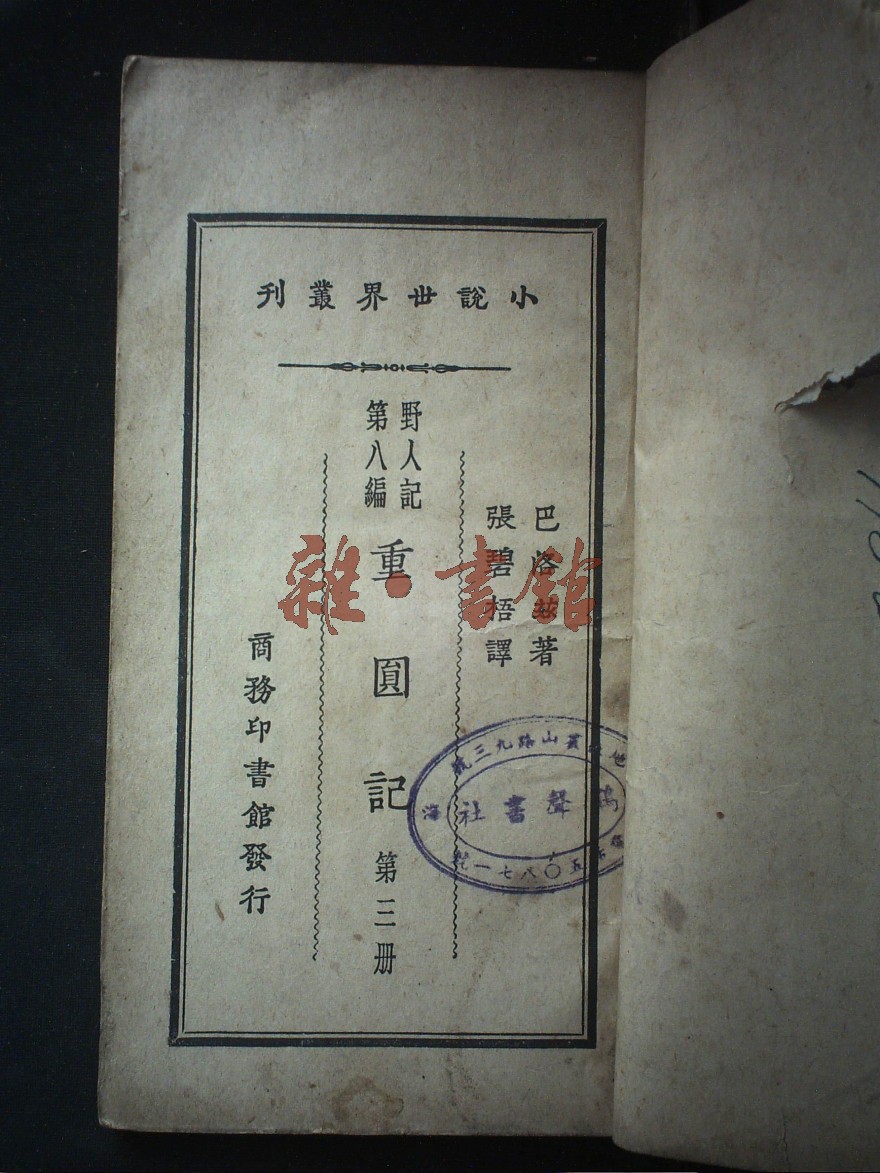 小說世界叢刊
巴洛兹著
張碧梧譯
野人記
第八編
重圓記 第三册
商務印書館發行
雜·書館
山路九三號
聲書社
海
五〇八七一號